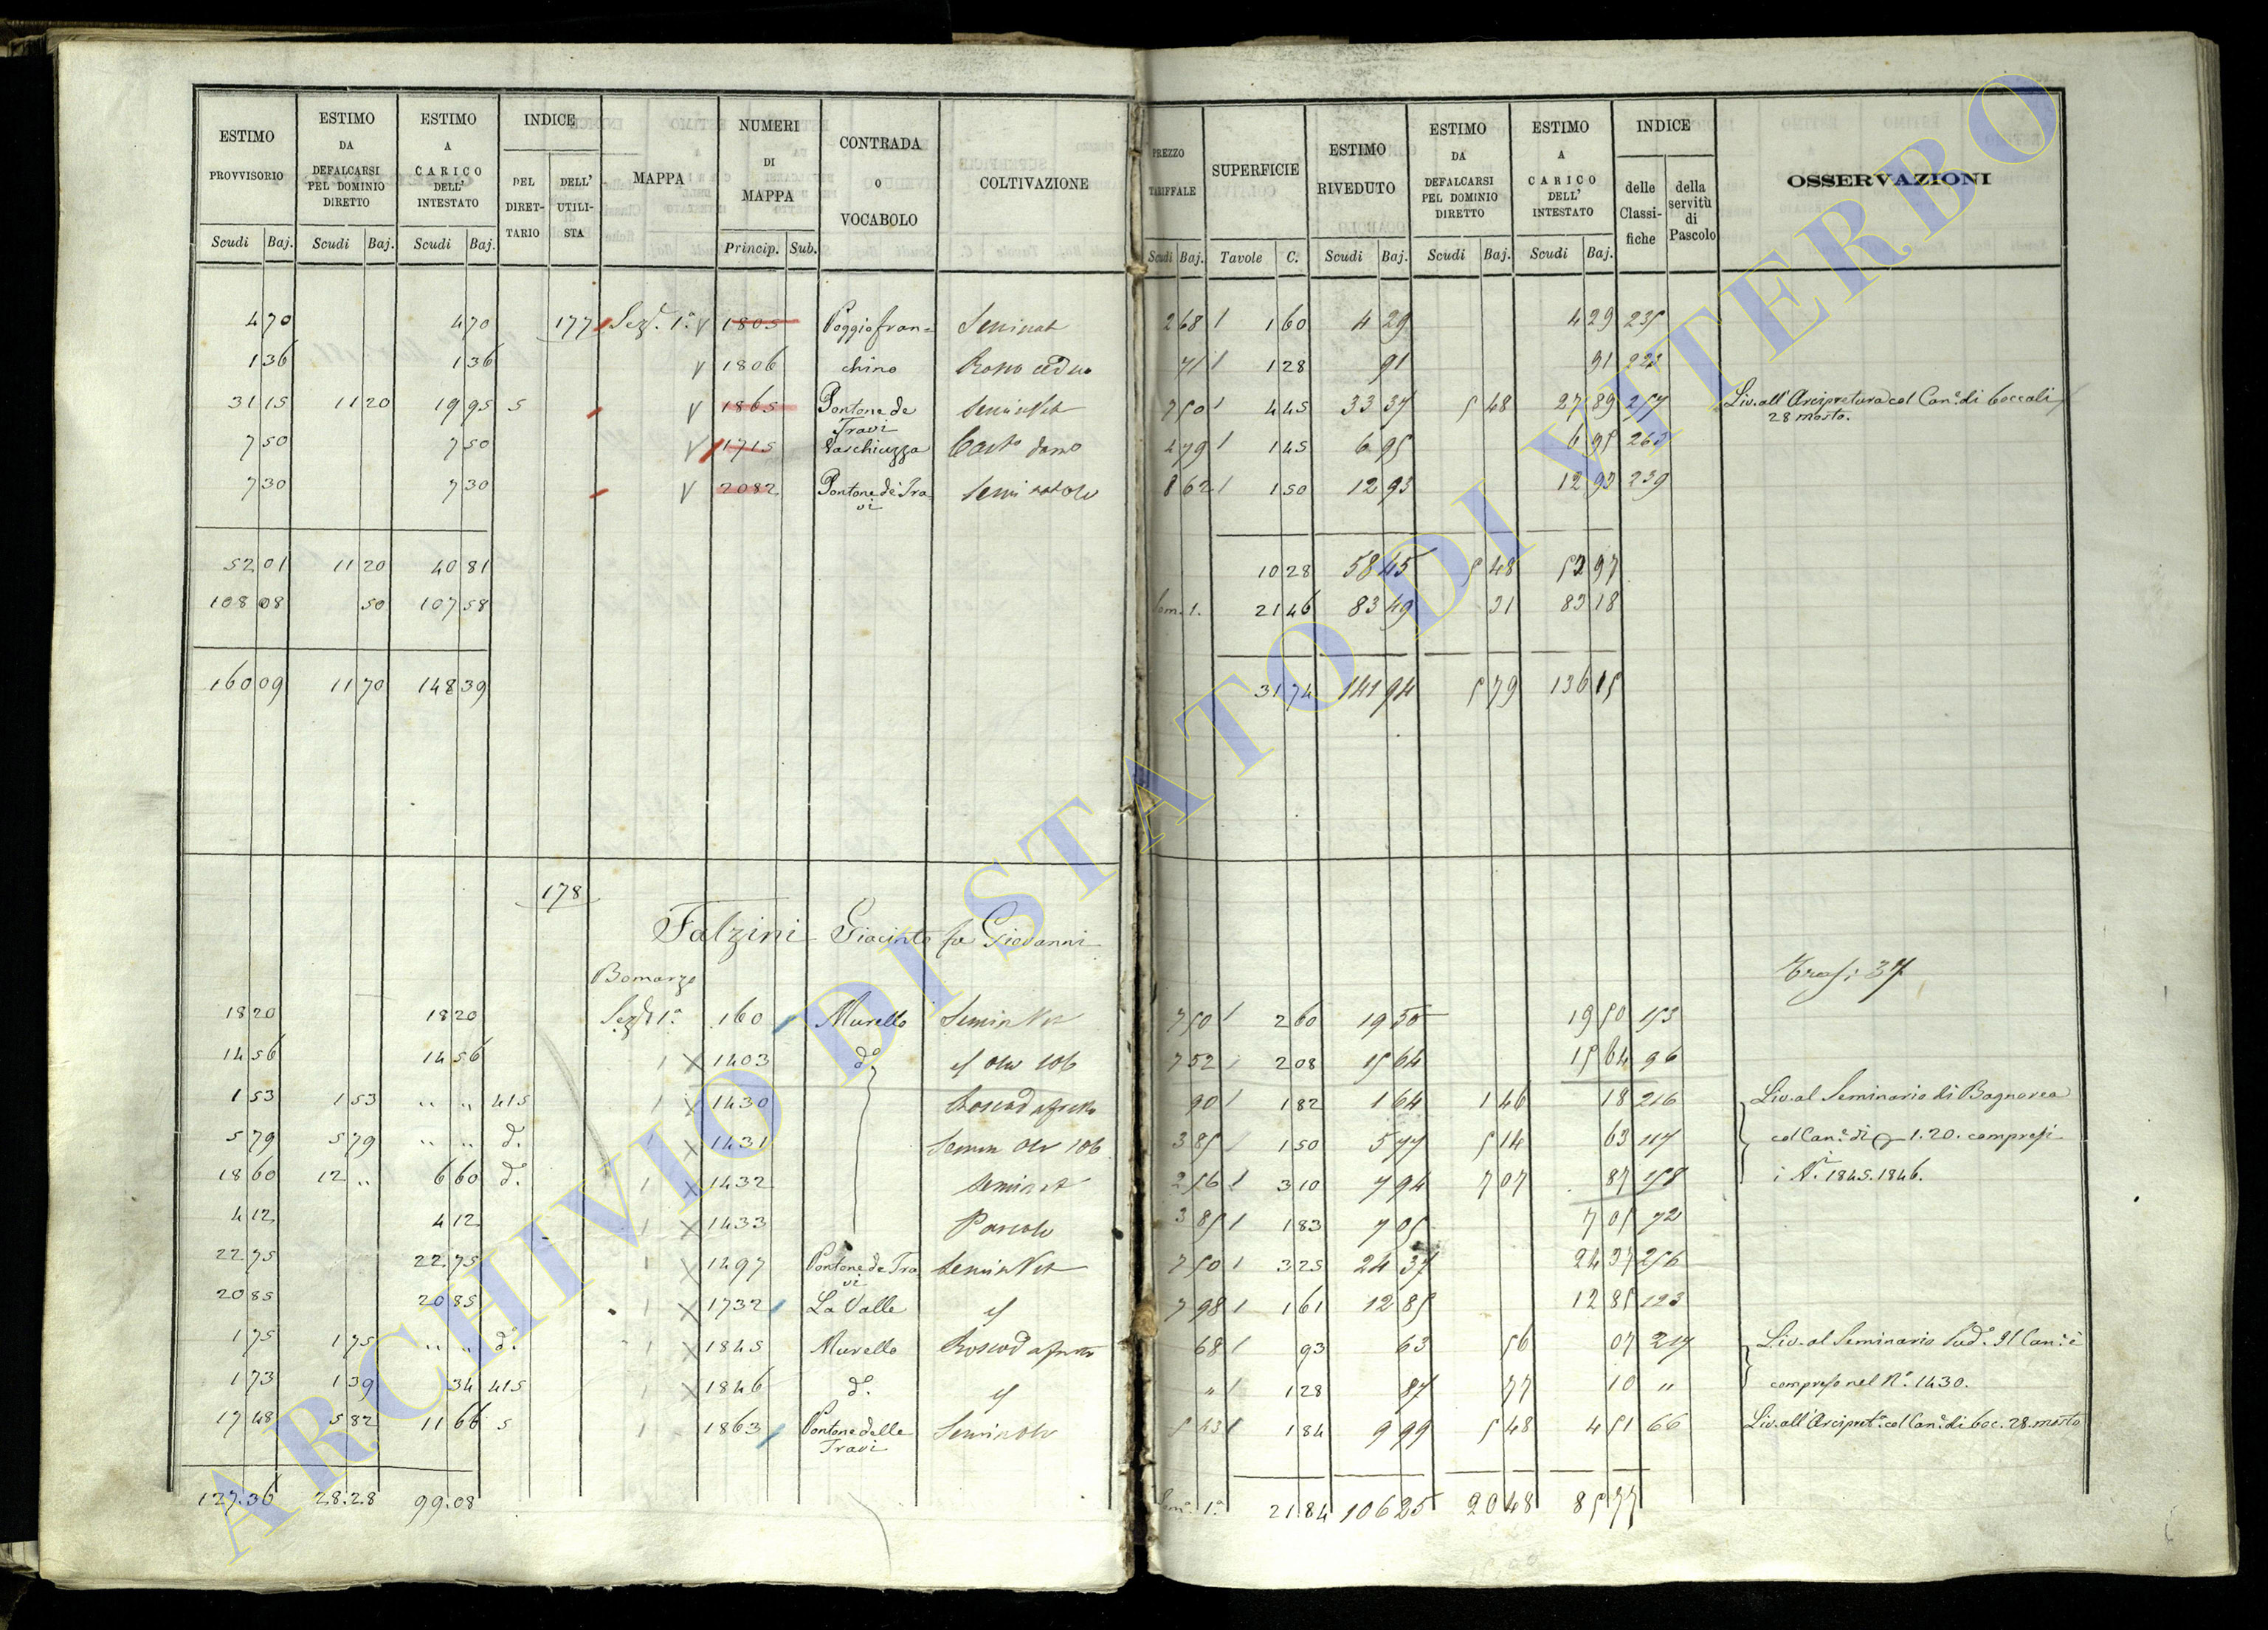 ESTIMO PROVVISORIO | ESTIMO DA DEFALCARSI PEL DOMINIO DIRETTO | ESTIMO A CARICO DELL' INTESTATO | INDICE DEL DIRETTARIO | DELL' UTILISTA | MAPPA | NUMERI DI MAPPA | CONTRADA O VOCABOLO | COLTIVAZIONE | PREZZO TARIFFALE | SUPERFICIE | ESTIMO RIVEDUTO | ESTIMO DA DEFALCARSI PEL DOMINIO DIRETTO | ESTIMO A CARICO DELL' INTESTATO | INDICE delle Classifiche | della servitù di Pascolo | OSSERVAZIONI
Scudi Baj. | Scudi Baj. | Scudi Baj. | Princip. Sub. | Scudi Baj. | Tavole C. | Scudi Baj. | Scudi Baj. | Scudi Baj.
4 70 4 70 177 Sez. 1a 1805 Poggiofran= Seminat 2 68 1 60 4 29 4 29 235
1 36 1 36 1806 chino Bosco ceduo 71 1 28 91 91
31 15 11 20 19 95 5 1865 Pontone de Travi SeminVit 7 50 4 45 33 37 5 48 27 89 257 Liv. all'Arcipretura col Can.e di boccali
28 mosto.
7 50 7 50 1715 Vaschiuzza Cast. 4 79 1 45 6 95 6 95
7 30 7 30 2082 Pontone de Travi 8 62 1 50 12 93 12 93 239
52 01 11 20 40 81 10 28 58 45 5 48 52 97
108 08 50 107 58 Som. 1. 21 46 83 49 31 83 18
160 09 11 70 148 39 31 74 141 94 5 79 136 15
178
Falzini Giacinto fu Giovanni
Bomarzo
Trasf: 37
18 20 18 20 Sez. 1a 160 Murello SeminVit 7 50 2 60 19 50 19 50 153
14 56 14 56 1403 do. 7 52 2 08 15 64 15 64 96
1 53 1 53 " " 415 1430 90 1 82 1 64 1 46 18 216 Liv. al Seminario di Bagnorea
5 79 5 79 " " d. 1431 3 85 1 50 5 77 5 14 63 117 col Can.e di 1.20. compresi
18 60 12 " 6 60 do. 1432 Seminat 2 56 3 10 7 94 7 07 87 158 i Ni. 1845. 1846.
4 12 4 12 1433 3 85 1 83 7 05 7 05 72
22 75 22 75 1497 Pontone de Travi SeminVit 7 50 3 25 24 37 24 37 256
20 85 20 85 1732 La Valle 7 98 1 61 12 85 12 85 123
1 75 1 75 " " d. 1845 Murello 68 93 63 56 07 217 Liv. al Seminario Sud.o Il Can.e è
1 73 1 39 34 415 1846 do. " 1 28 87 77 10 " compreso nel No. 1430.
17 48 5 82 11 66 5 1863 Pontone delle Travi 5 43 1 84 9 99 5 48 4 51 66 Liv. all'Arcipret.a col Can.e di boc. 28. mosto
127.36 28.28 99.08 Som. 1a. 21.84 106 25 20 48 85 77
ARCHIVIO DI STATO DI VITERBO